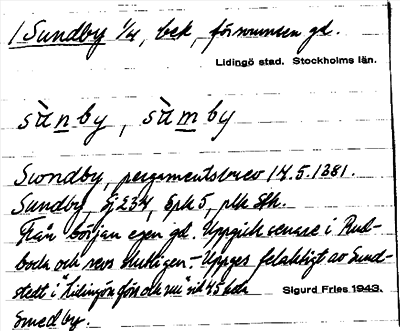 / Sundby 1/4, bek, försvunnen gd.
Lidingö stad. Stockholms län.
sùnby, sùmby
Swondby, pergamentsbrev 14.5.1381.
Sundby, Ej 234, Spk 5, plk Sthk.
Från början egen gd. Uppgick senare i Rud-
boda och revs slutligen. - Uppges felaktigt av Sund-
stedt i "Lidingön förr och nu" sid 45 heta
Sigurd Fries 1943.
Smedby.